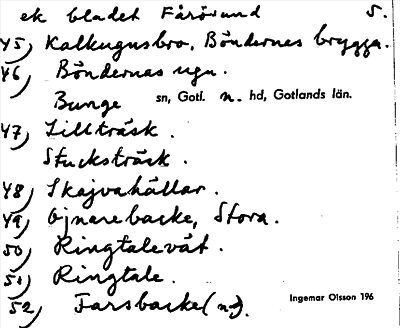 ek bladet Fårösund 5.
45) Kalkugnsbro, Böndernes brygga.
46) Böndernas ugn.
Bunge sn, Gotl. n. hd, Gotlands län.
47) Lillträsk.
Stucksträsk.
48) Skajvahällar.
49) Ojnarebacke, Stora.
50) Ringtalevät.
51) Ringtale.
52) Farsbacke(n).
Ingemar Olsson 196